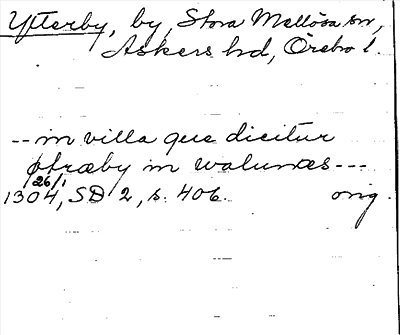 Ytterby, by, Stora Mellösa sn,
Askers hd, Örebro l.
-- in villa que dicitur
øfræby in walunæs ---
26/1
1304, SD 2, s. 406. orig.